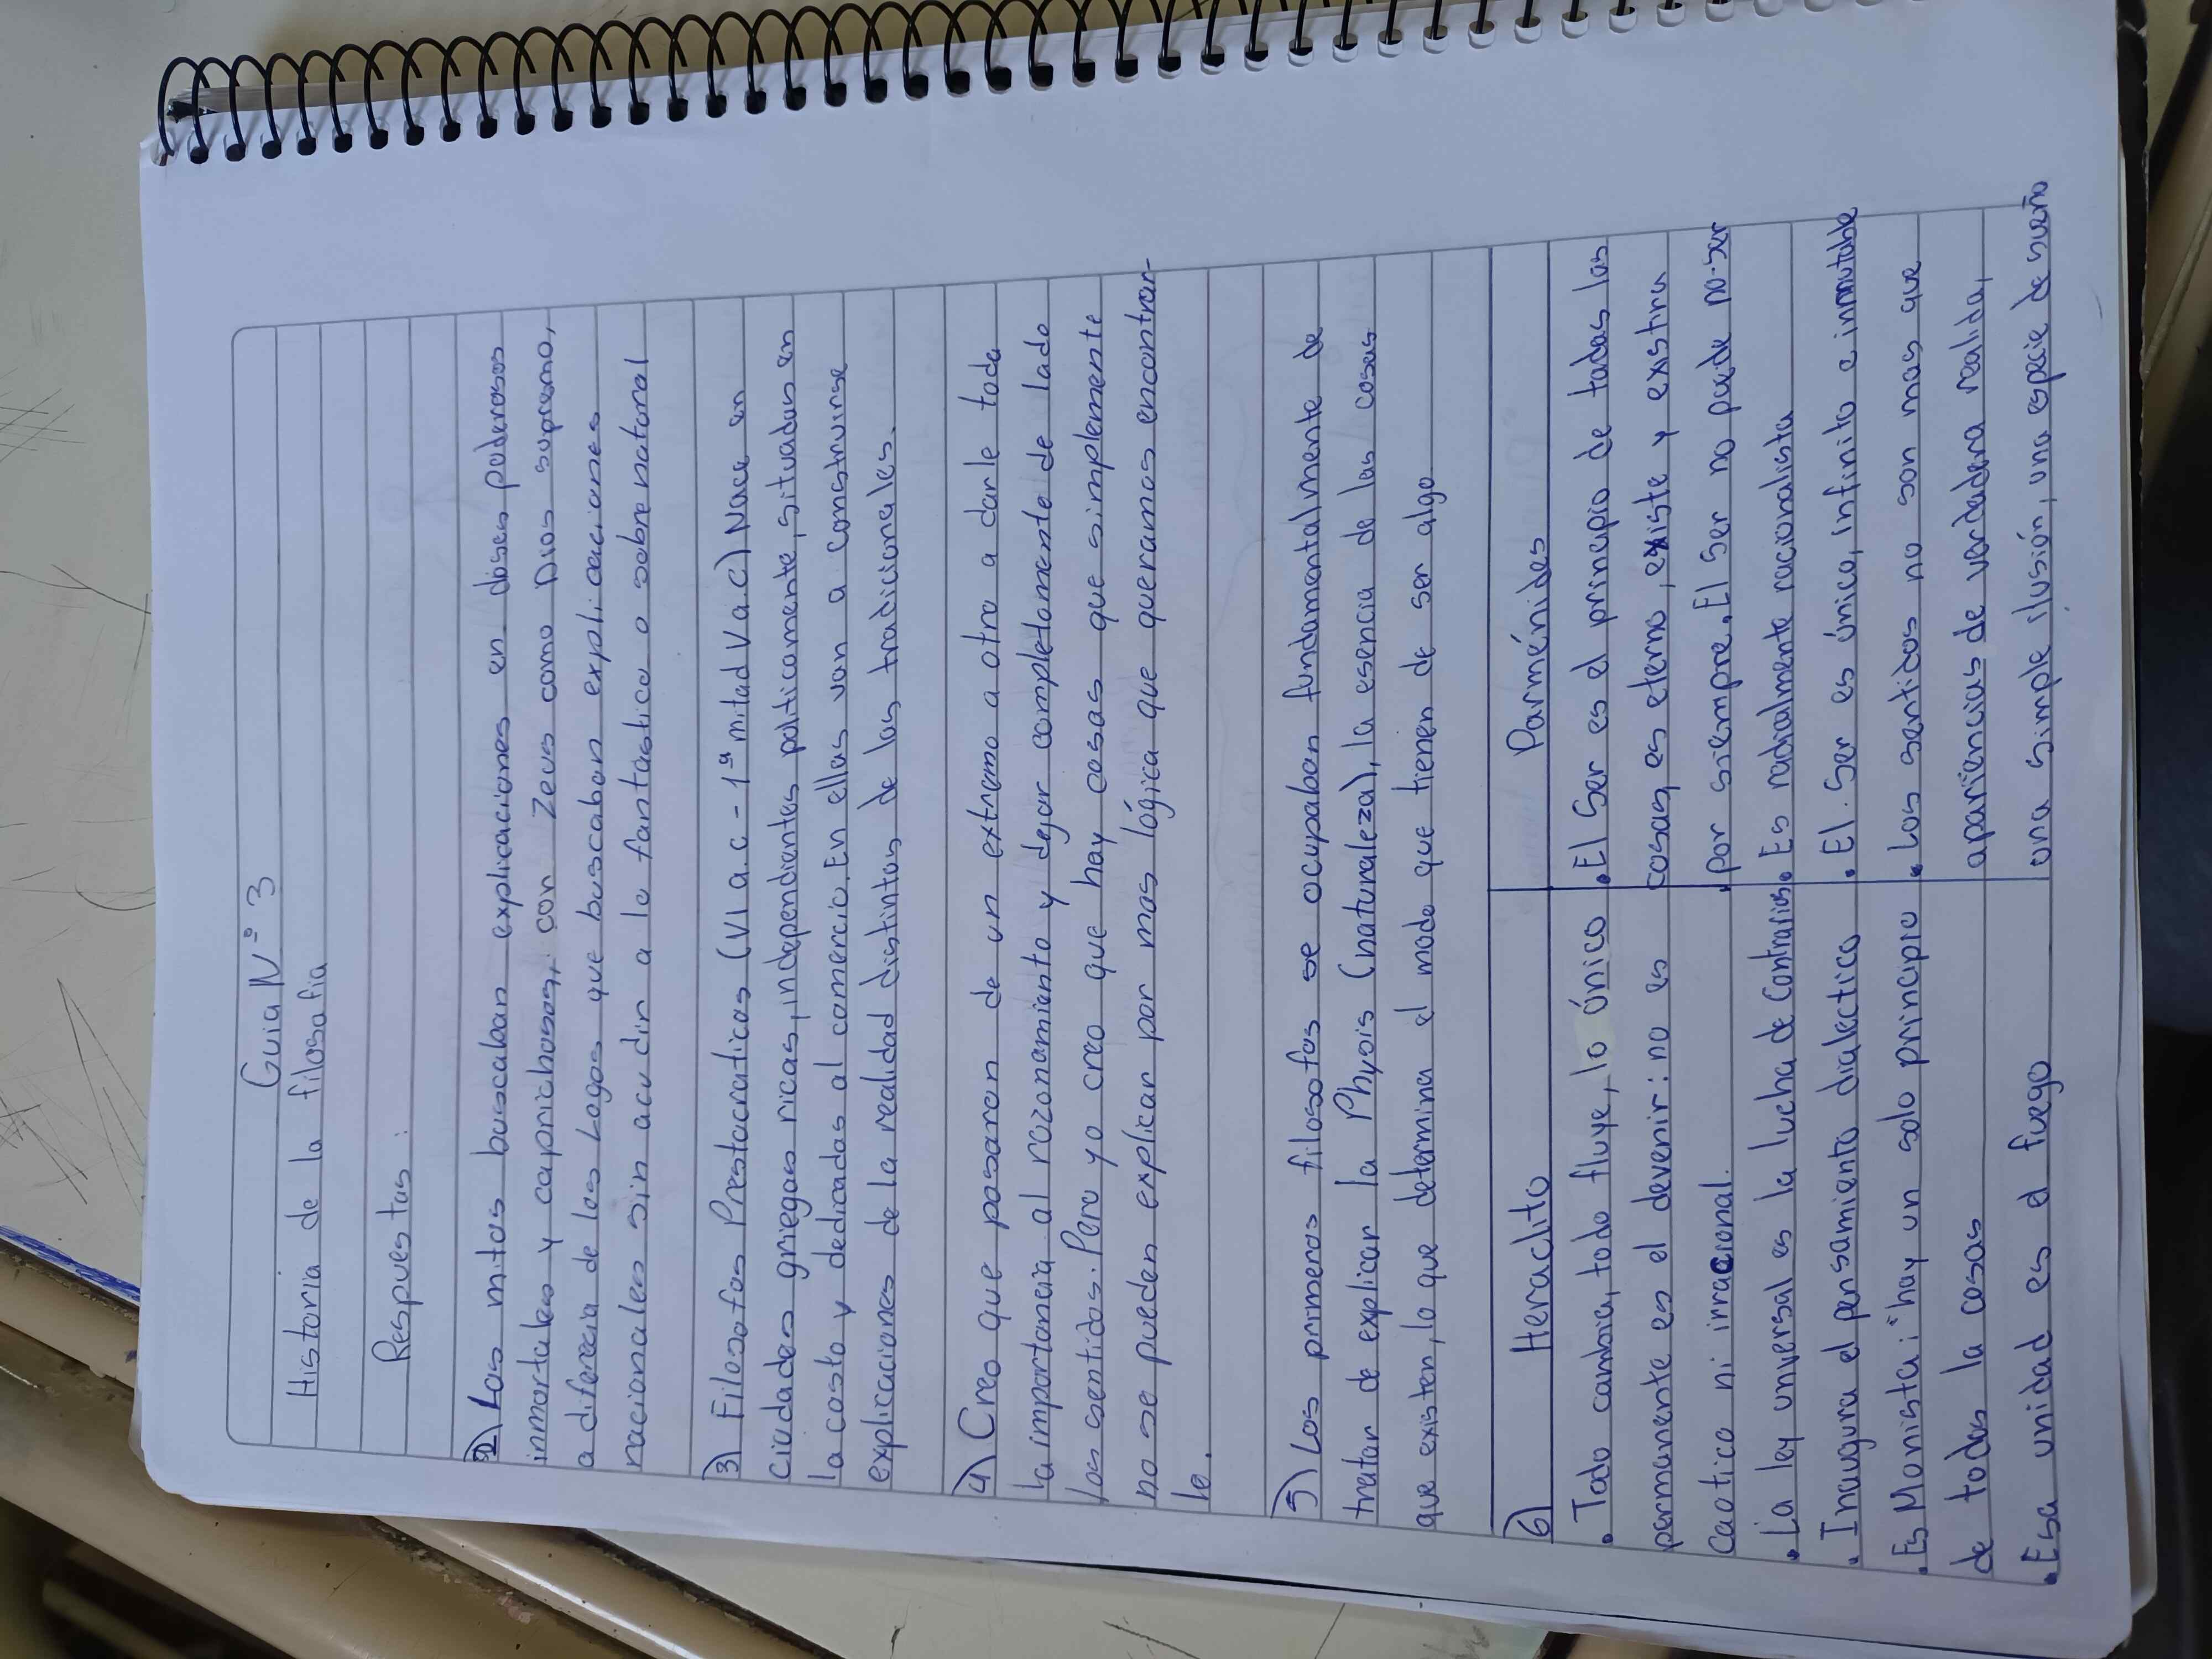 Guia N° 3
Historia de la filosofia
Respuestas:
2) Los mitos buscaban explicaciones en dioses poderosos
inmortales y caprichosos, con Zeus como Dios supremo,
a diferecia de los Logos que buscaban explicaciones
racionales sin acudir a lo fantastico o sobrenatural
3) Filosofos Prestocraticos (VI a.c - 1ª mitad V a.c) Nace en
Ciudades griegas ricas, independientes politicamente, situadas en
la costa y dedicadas al comercio. En ellas van a construirse
explicaciones de la realidad distintas de las tradicionales.
4) Creo que pasaron de un extremo a otro a darle toda
la importancia al razonamiento y dejar completamente de lado
los sentidos. Pero yo creo que hay cosas que simplemente
no se pueden explicar por mas lógica que queramos encontrar-
le.
5) Los primeros filosofos se ocupaban fundamentalmente de
tratar de explicar la Physis (naturaleza), la esencia de las cosas
que existen, lo que determina el modo que tienen de ser algo
6) Heraclito
• Todo cambia, todo fluye, lo único
permanente es el devenir: no es
caotico ni irracional.
• La ley unversal es la lucha de Contrarios
• Inaugura el pensamiento dialectico
• Es Monista: hay un solo principio
de todas la cosas
• Esa unidad es el fuego
Parménides
• El Ser es el principio de todas las
cosas, es eterno, existe y existira
por siempre. El Ser no puede no-ser
• Es radialmente racionalista
• El Ser es único, infinito e inmutable
• Los sentidos no son mas que
apariencias de verdadera realida,
una simple ilusión, una especie de sueño